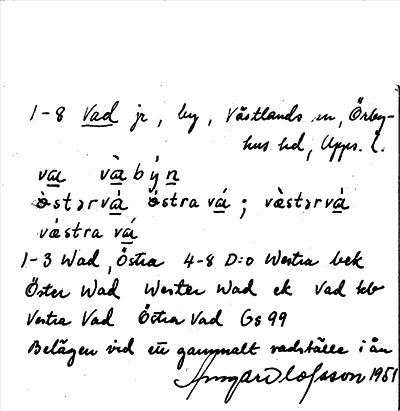 1-8 Vad jr, by, Västlands sn, Örby-
hus hd, Upps. l.
va vàbýn
òstərvá òstra vá; vàstərvá
vàstra vá
1-3 Wad, Östra 4-8 D:o Westra bek
Öster Wad Wester Wad ek Vad
Vestra Vad Östra Vad Gs 99
Belägen vid ett gammalt vadställe i ån
Olofsson 1951